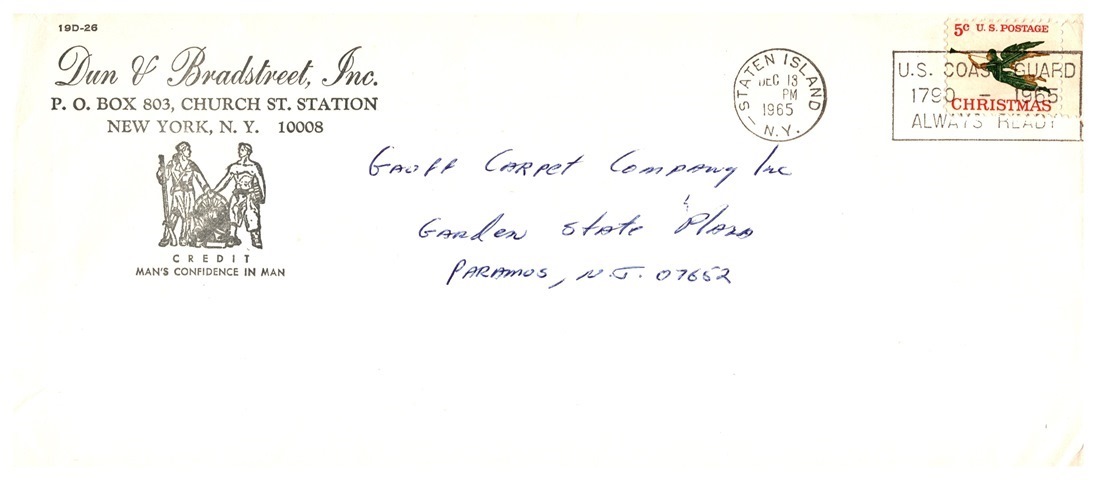 19D-26
Dun & Bradstreet, Inc.
P. O. BOX 803, CHURCH ST. STATION
NEW YORK, N. Y. 10008
CREDIT
MAN'S CONFIDENCE IN MAN
STATEN ISLAND
DEC 13
PM
1965
N.Y.
5c U.S. POSTAGE
CHRISTMAS
U.S. COAST GUARD
1790 - 1965
ALWAYS READY
Carpet Company Inc
Garden State Plaza
Paramus, N.J. 07652